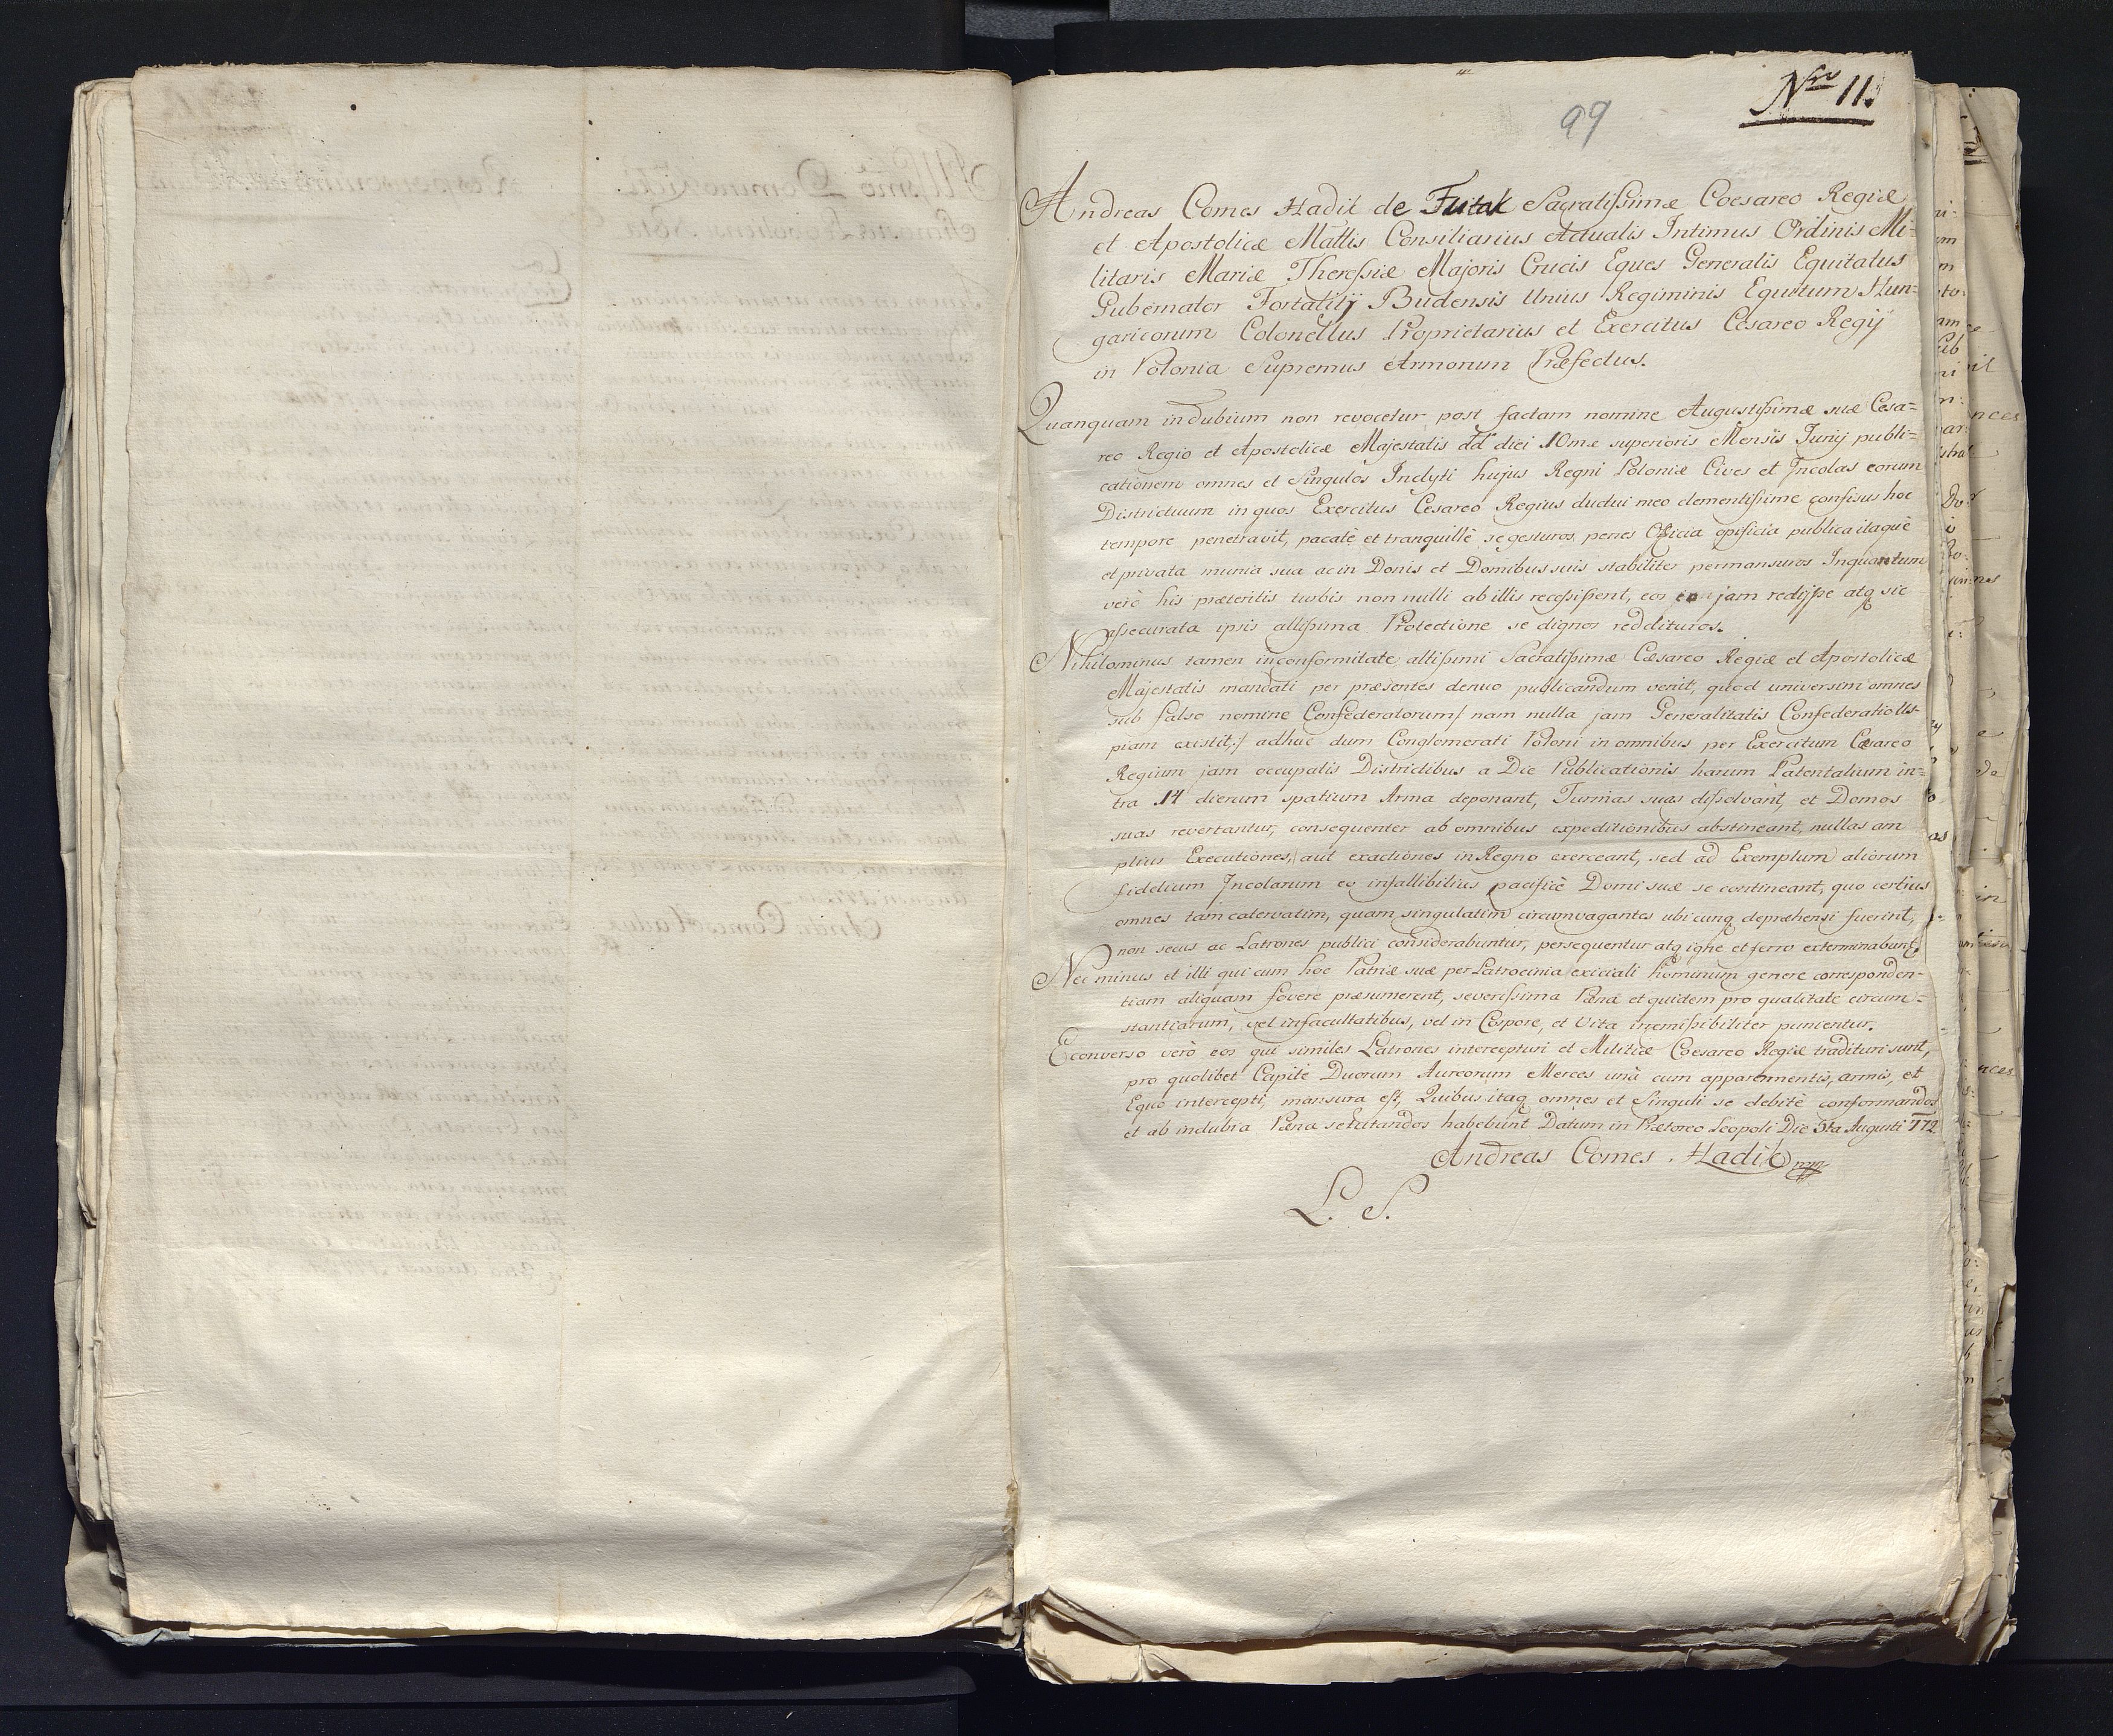 Nro 11.
99
Andreas Comes Hadik de Futak Sacratissimæ Coesareo Regiæ
et Apostolicæ Mattis Consiliarius Actualis Intimus Ordinis Mi=
litaris Mariæ Theresiæ Majoris Crucis Eques Generalis Equitatus
Gubernator Fortalitij Budensis Unius Regiminis Equitum Hun=
garicorum Colonellus Proprietarius et Exercitus Cesareo Regij
in Polonia Supremus Armorum Præfectus.
Quanquam in dubium non revocetur post factam nomine Augustissimæ suæ Cesa=
reo Regio et Apostolicæ Majestatis dd diei 10mæ superioris Mensis Junij publi=
cationem omnes et Singulos Inclyti hujus Regni Poloniæ Cives et Incolas eorum
Districtuum in quos Exercitus Cesareo Regius ductui meo clementissime confisus hoc
tempore penetravit, pacatè et tranquillè se gesturos penes Officia opificia publica itaque
et privata munia sua ac in Bonis et Domibus suis stabiliter permansuros Inquantum
verò his præteritis turbis non nulli ab illis recessissent, eos jam redijsse atq sic
assecurata ipsis altissima Protectione se dignos reddituros.
Nihilominus tamen inconformitate altissimi Sacratissimæ Cæsareo Regiæ et Apostolicæ
Majestatis mandati per præsentes denuo publicandum venit, quod universim omnes
sub falso nomine Confederatorum/ nam nulla jam Generalitatis Confederatio Us-
piam existit,/ adhuc dum Conglomerati Poloni in omnibus per Exercitum Cæsareo
Regium jam occupatis Districtibus a Die Publicationis harum Patentalium in=
tra 14 dierum spatium Arma deponant, Turmas suas dissolvant, et Domos
suas revertantur, consequenter ab omnibus expeditionibus abstineant, nullas am
plius Executiones, aut exactiones in Regno exerceant, sed ad Exemplum aliorum
fidelium Incolarum eo infallibilius pacificè Domi suæ se contineant, quo certius
omnes tam catervatim, quam singulatim circumvagantes ubicunq depræhensi fuerint,
non secus ac Latrones publici considerabuntur, persequentur atq igne et ferro exterminabunt
Nec minus et illi qui cum hoc Patriæ suæ per Latrocinia exiciali hominum genere corresponden-
tiam aliquam fovere præsumerent, severissima Pæna et quidem pro qualitate circum=
stantiarum, vel in facultatibus, vel in Corpore, et Vita irremissibiliter punientur.
Econverso verò eos qui similes Latrones intercepturi et Militiæ Coesareo Regiæ tradituri sunt,
pro quolibet Capite Duorum Aureorum Merces unà cum apparamentis, armis, et
Equo intercepti, mansura est, Quibus itaq omnes et Singuli se debitè conformandos
et ab indubia Pæna se tutandos habebunt Datum in Prætoreo Leopoli Die 5ta Augusti 772
Andreas Comes Hadik mp
L. S.